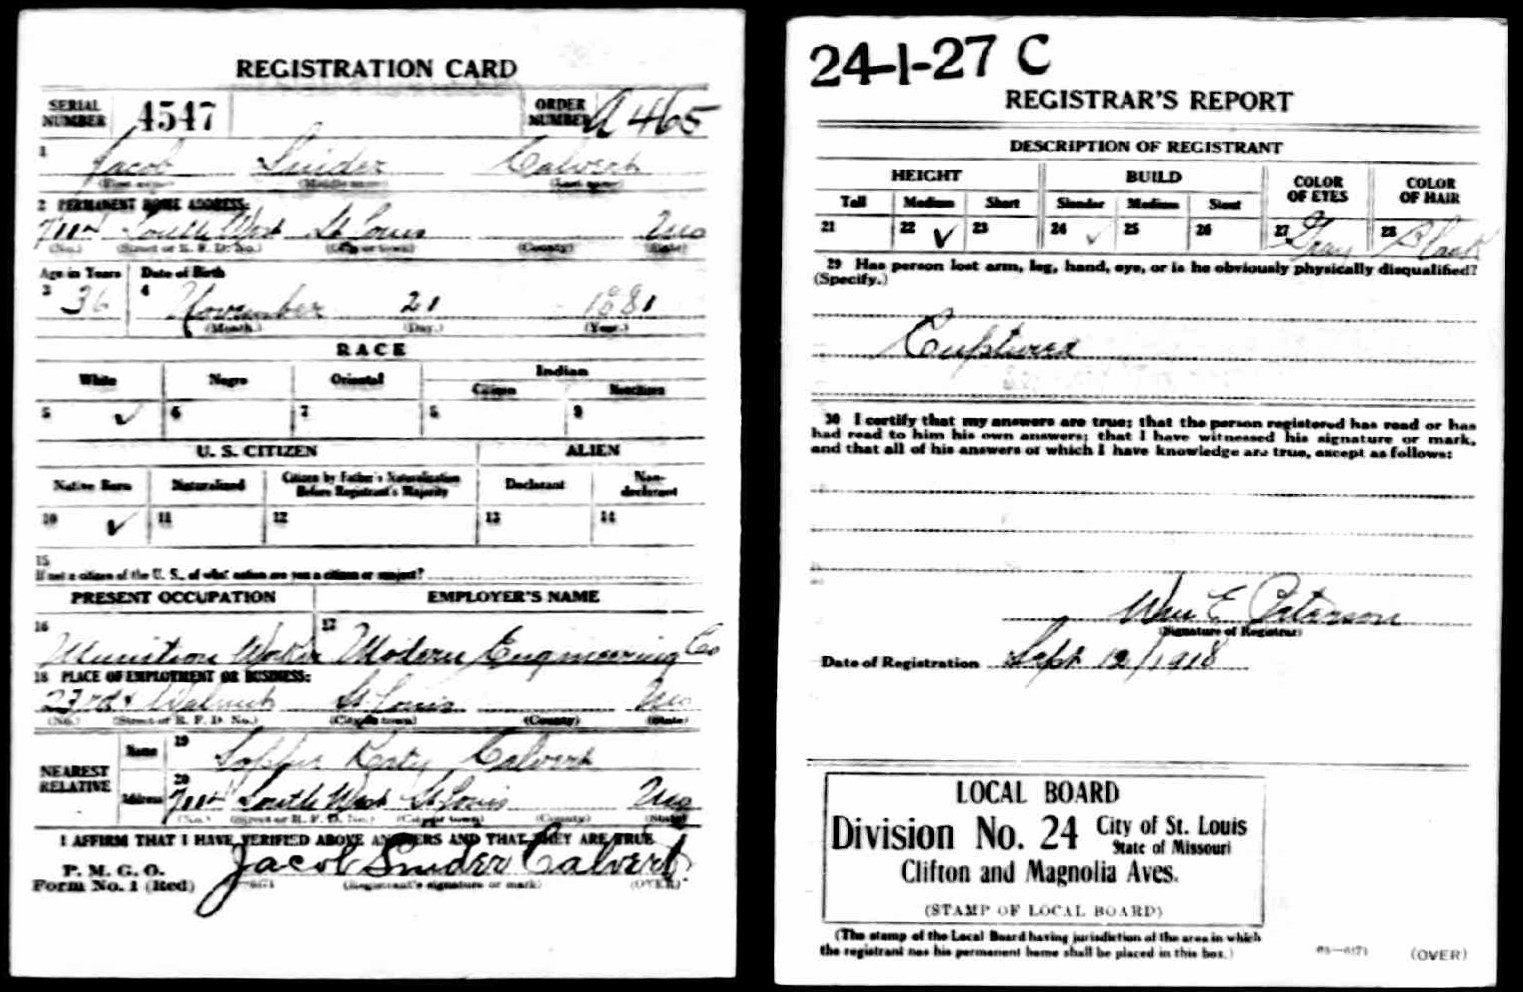 REGISTRATION CARD
SERIAL NUMBER 4547 ORDER NUMBER A465
1 Jacob Snider Calvert
(First name) (Middle name) (Last name)
2 PERMANENT HOME ADDRESS:
South West St Louis Mo
(No.) (Street or R. F. D. No.) (City or town) (County) (State)
Age in Years Date of Birth
3 36 4 November 21 1881
(Month.) (Day.) (Year.)
RACE
White Negro Oriental Indian
Citizen Noncitizen
5 ✓ 6 7 8 9
U. S. CITIZEN ALIEN
Native Born Naturalized Citizen by Father's Naturalization Before Registrant's Majority Declarant Non-declarant
10 ✓ 11 12 13 14
15
If not a citizen of the U. S., of what nation are you a citizen or subject?
PRESENT OCCUPATION EMPLOYER'S NAME
16 Munition Worker 17 Modern Engineering Co
18 PLACE OF EMPLOYMENT OR BUSINESS:
23rd & Walnut St Louis Mo
(No.) (Street or R. F. D. No.) (City or town) (County) (State)
NEAREST RELATIVE
Name 19 Katy Calvert
Address 20 South West St Louis Mo
(No.) (Street or R. F. D. No.) (City or town) (County) (State)
I AFFIRM THAT I HAVE VERIFIED ABOVE ANSWERS AND THAT THEY ARE TRUE
P. M. G. O.
Form No. 1 (Red) Jacob Snider Calvert
(Registrant's signature or mark) (OVER)
24-1-27 C
REGISTRAR'S REPORT
DESCRIPTION OF REGISTRANT
HEIGHT BUILD COLOR OF EYES COLOR OF HAIR
Tall Medium Short Slender Medium Stout
21 22 ✓ 23 24 ✓ 25 26 27 Gray 28 Black
29 Has person lost arm, leg, hand, eye, or is he obviously physically disqualified?
(Specify.)
Ruptured
30 I certify that my answers are true; that the person registered has read or has
had read to him his own answers; that I have witnessed his signature or mark,
and that all of his answers of which I have knowledge are true, except as follows:
Wm E Peterson
(Signature of Registrar)
Date of Registration Sept 12/1918
LOCAL BOARD
Division No. 24 City of St. Louis
State of Missouri
Clifton and Magnolia Aves.
(STAMP OF LOCAL BOARD)
(The stamp of the Local Board having jurisdiction of the area in which
the registrant has his permanent home shall be placed in this box.)
(OVER)